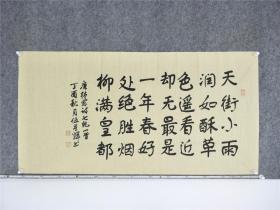 天街小雨
润如酥草
色遥看近
却无最是
一年春好
处绝胜烟
柳满皇都
唐韩愈诗七绝一首
丁酉秋月